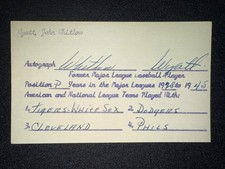 Wyatt, John Whitlow
Autograph Whitlow Wyatt
Former Major League Baseball Player
Position P Years in the Major Leagues 1929 to 1945
American and National League Teams Played With:
1. Tigers-White Sox 2. Dodgers
3. Cleveland 4. Phils